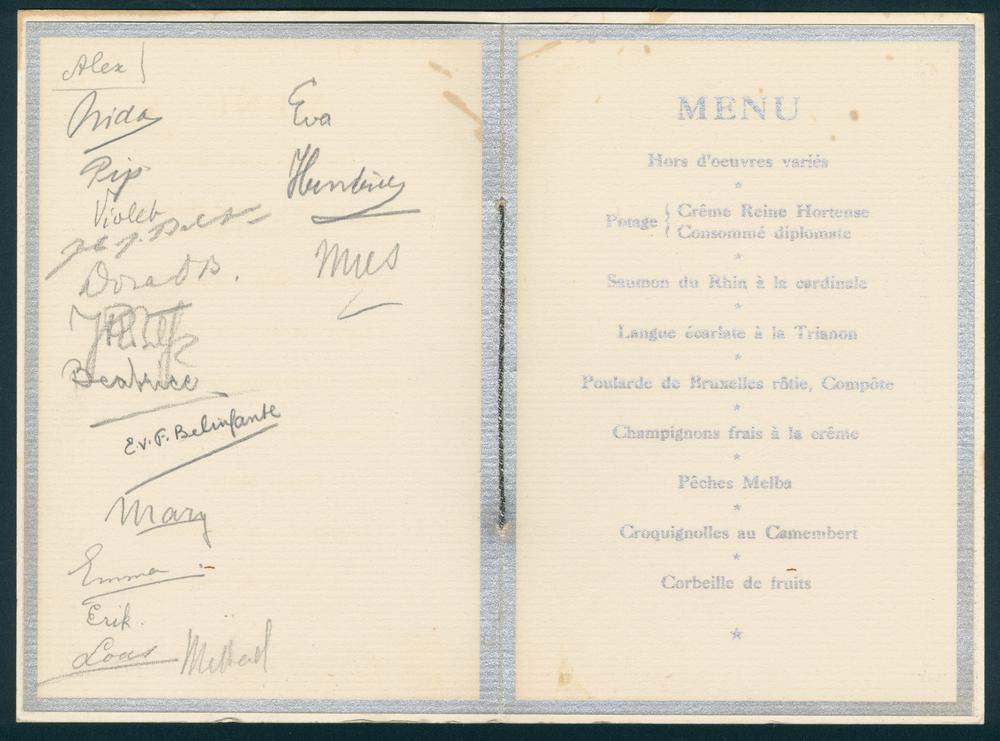 Alex
Pip
Violet
Dora DB.
Beatrice
E.v.F. Belinfante
Mary
Emma
Erik.
Loes
Eva
Mies
MENU
Hors d'oeuvres variés
*
Potage { Crême Reine Hortense
Consommé diplomate
*
Saumon du Rhin à la cardinale
*
Langue écarlate à la Trianon
*
Poularde de Bruxelles rôtie, Compôte
*
Champignons frais à la crême
*
Pêches Melba
*
Croquignolles au Camembert
*
Corbeille de fruits
*